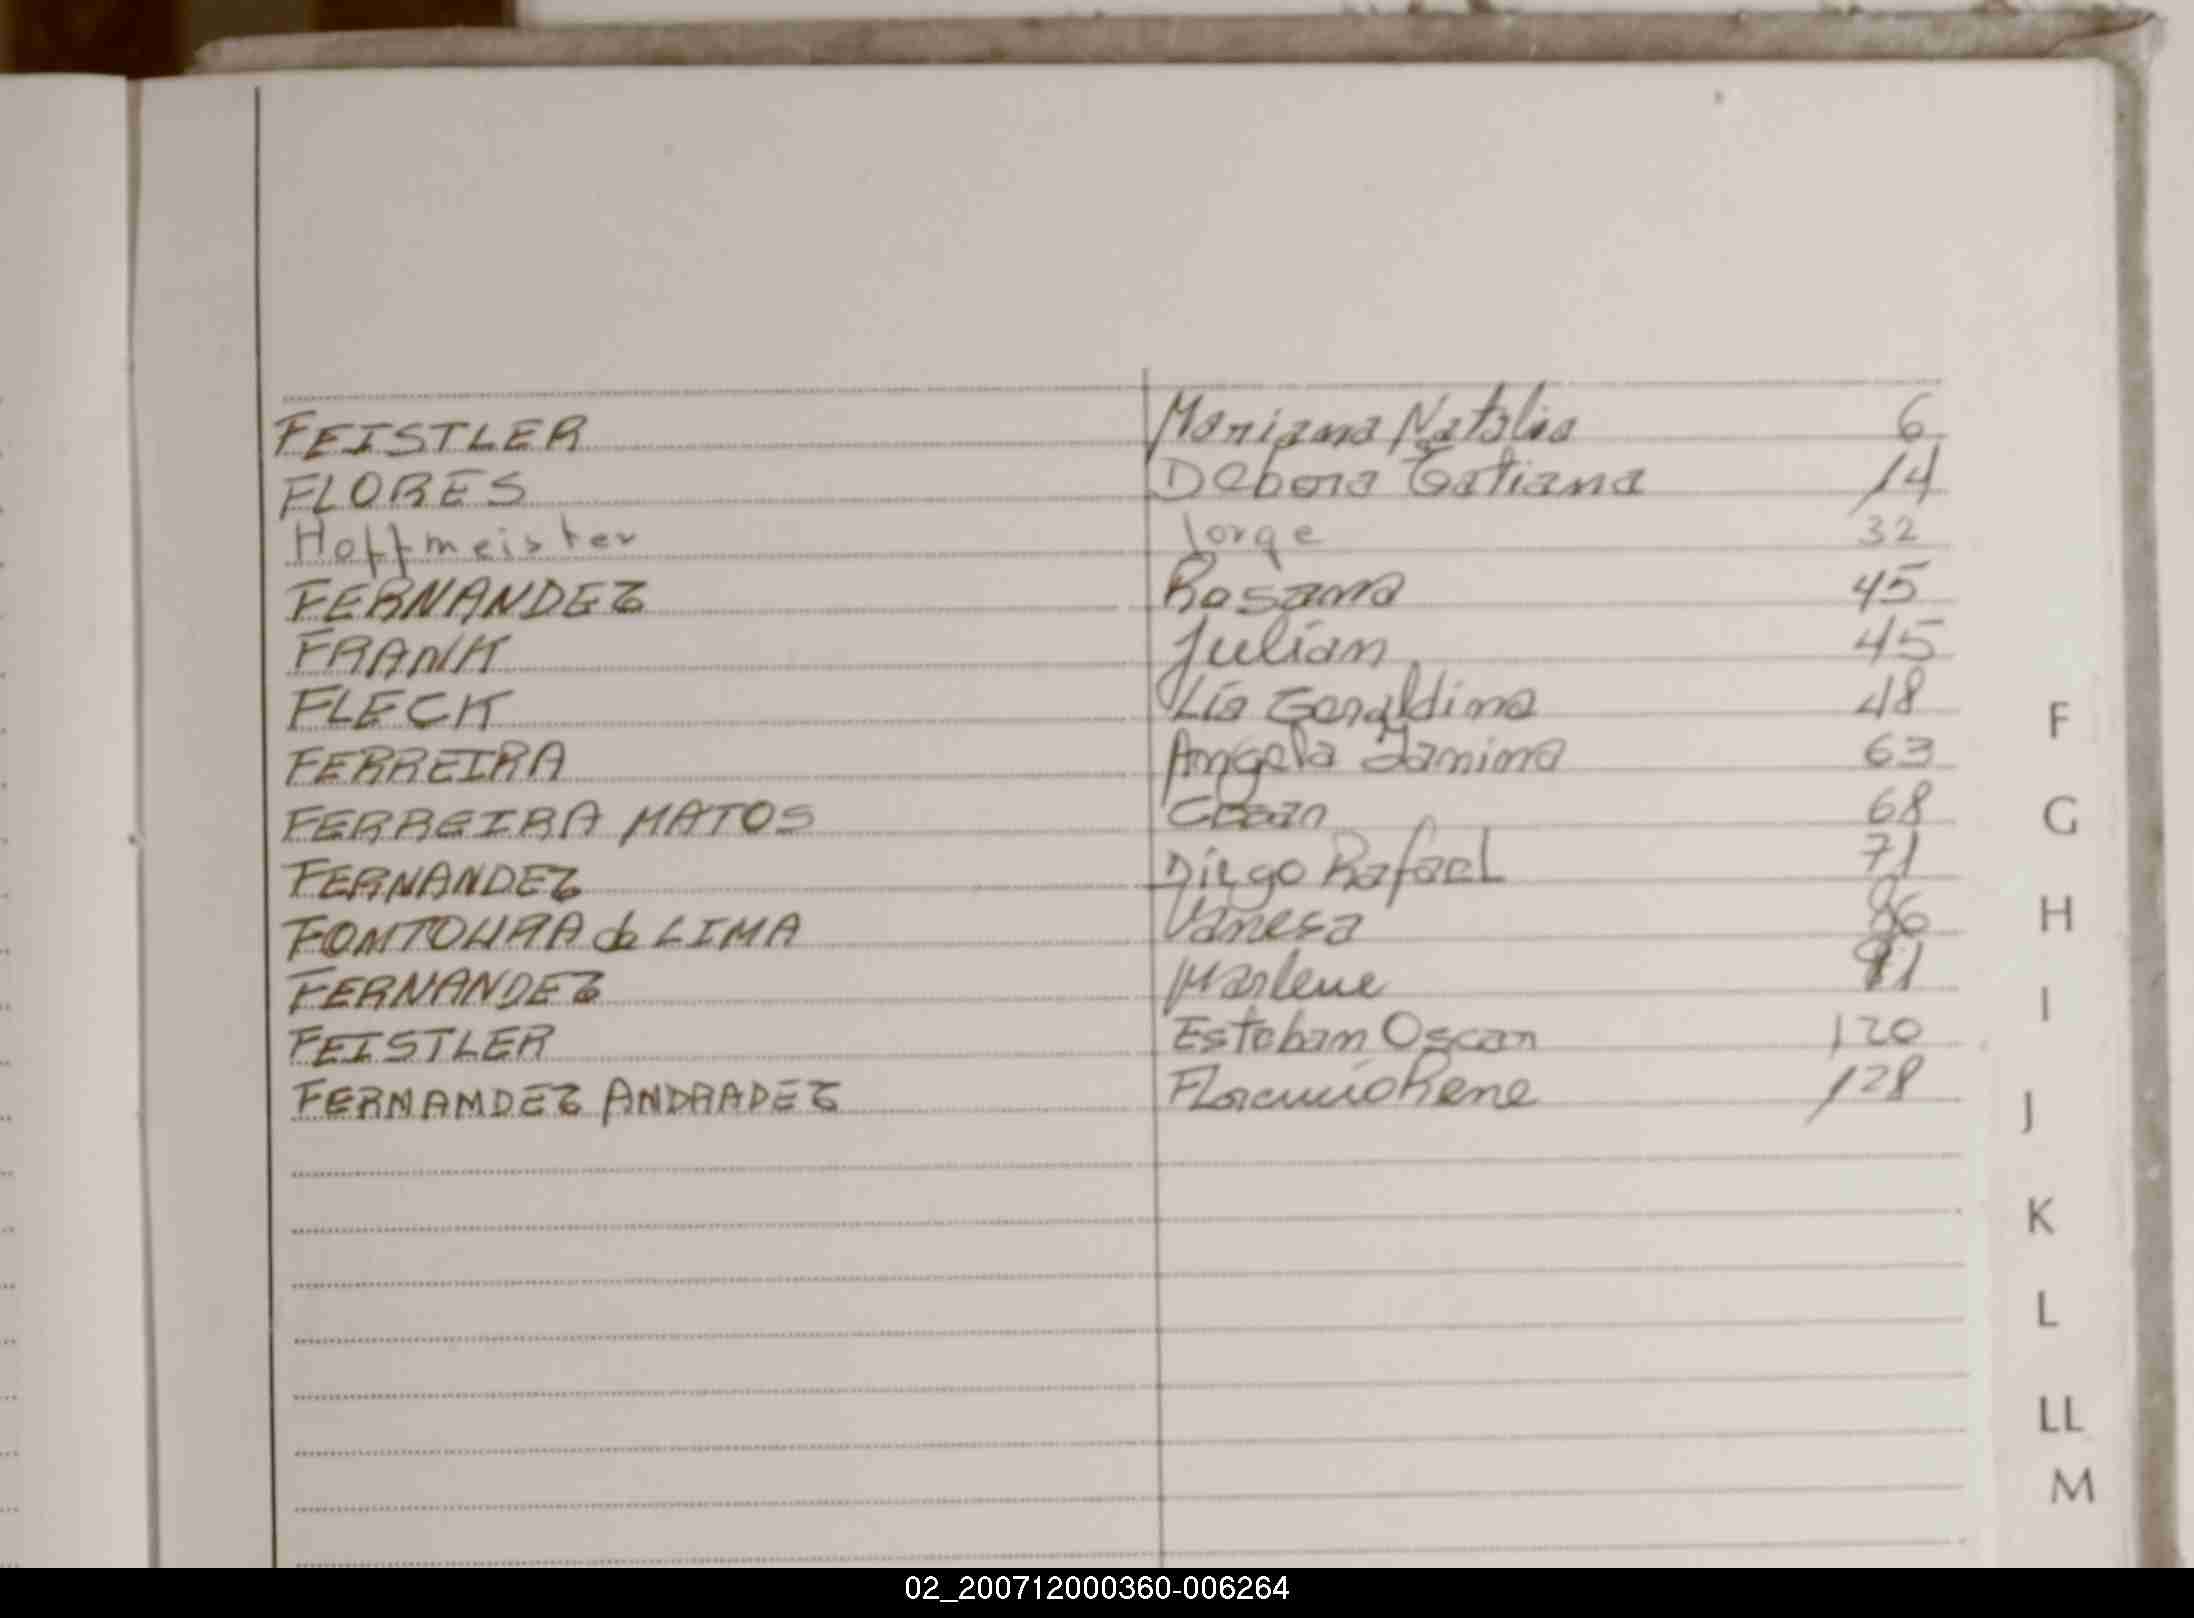 FEISTLER Mariana Natalia 6
FLORES Debora Tatiana 14
Hoffmeister Jorge 32
FERNANDEZ Rosana 45
FRANK Julian 45
FLECK Lía Geraldina 48
FERREIRA Angela Janina 63
FERREIRA MATOS 68
FERNANDEZ Diego Rafael 71
FONTOURA de LIMA Vanesa 86
FERNANDEZ Marlene 91
FEISTLER Esteban Oscar 120
FERNANDEZ ANDRADEZ Rene 128
F
G
H
I
J
K
L
LL
M
02_200712000360-006264